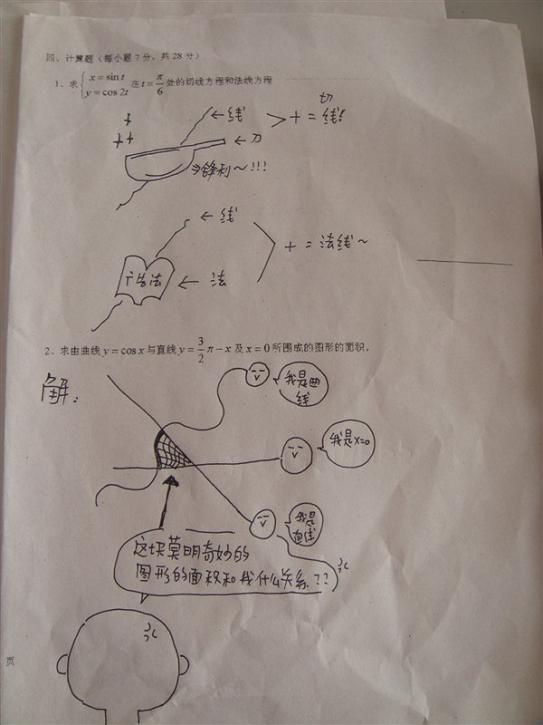 四、计算题（每小题7分，共28分）
1、求{x=sin t y=cos 2t 在 t=π/6 处的切线方程和法线方程
切
← 线 > + = 线!
← 刀
锋利~!!!
← 线
+ = 法线~
广告法 ← 法
2、求由曲线 y=cos x 与直线 y=3/2π-x 及 x=0 所围成的图形的面积。
解:
我是曲
线
我是x=0
我是
直线
这块莫明奇妙的
图形的面积和我什么关系??
页